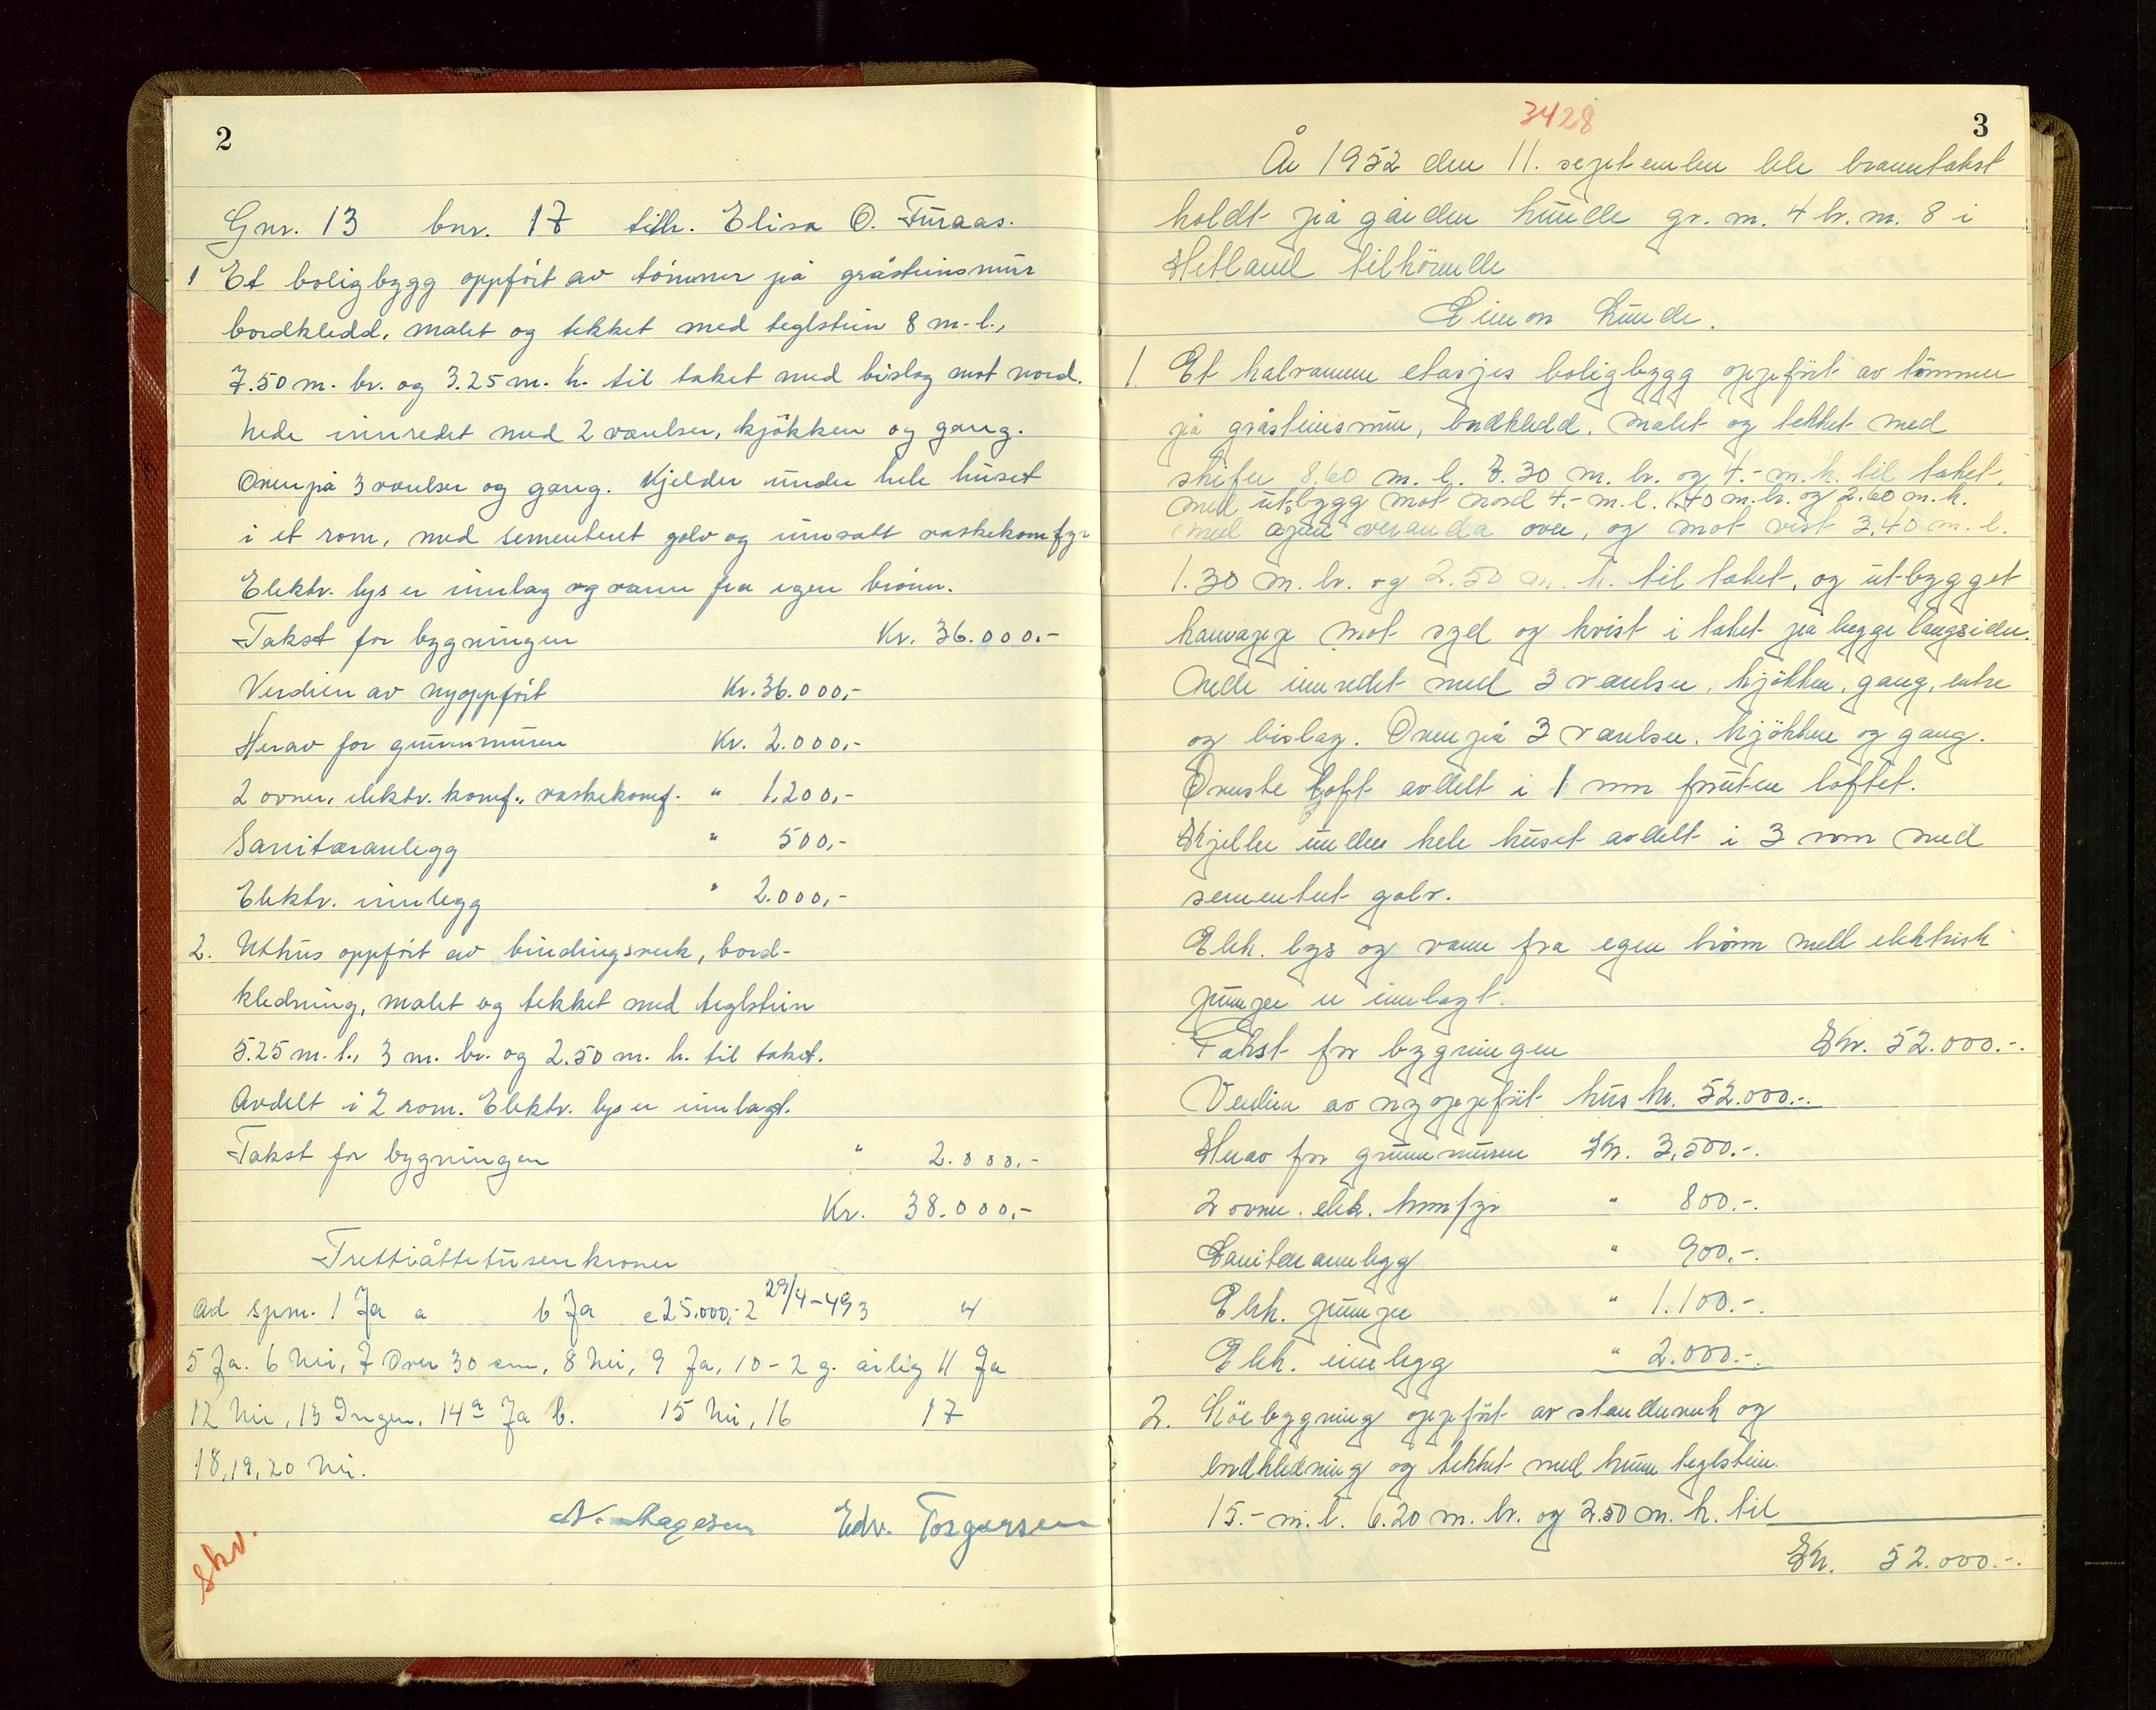 2
Gnr. 13 bnr. 17 tilh. Elisa O. Furaas.
1 Et boligbygg oppført av tömmer på gråsteinsmur
bordkledd, malet og tekket med teglstein 8 m. l.,
7.50 m. br. og 3.25 m. h. til taket med bislag mot nord.
Nede innredet med 2 værelser, kjökken og gang.
Ovenpå 3 værelser og gang. Kjelder under hele huset
i et rom, med sementeret golv og innsatt vaskekomfyr
Elektr. lys er innlag og vann fra egen brönn.
Takst for bygningen Kr. 36.000.-
Verdien av nyoppfört Kr. 36.000,-
Herav for grunnmuren Kr. 2.000,-
2 ovner, elektr. komf., vaskekomf. " 1.200,-
Sanitæranlegg " 500,-
Elektr. innlegg " 2.000,-
2. Uthus oppfört av bindingsverk, bord-
kledning, malet og tekket med teglstein
5.25 m. l., 3 m. br. og 2.50 m. h. til taket.
Avdelt i 2 rom. Elektr. lys er innlagt.
Takst for bygningen " 2.000.-
Kr. 38.000,-
Trettiåttetusenkroner
Ad spm. 1 Ja a b Ja c 25.000,- 2 29/4-49 3 4
5 Ja. 6 Nei, 7 Over 30 cm, 8 Nei, 9 Ja, 10 - 2 g. årlig 11 Ja
12 Nei, 13 Ingen, 14 a Ja b. 15 Nei, 16 17
18, 19, 20 Nei.
Edv. Torgersen
Skv.
3428
3
År 1952 den 11. september ble branntakst
holdt på gården Lunde gr. m. 4 br. m. 8 i
Hetland tilhörende
Einar Lunde.
1. Et halvannen etasjes boligbygg oppfört av tömmer
på gråsteinsmur, bordkledd, malet og tekket med
skifer 8.60 m. l. 7.30 m. br. og 4.- m. h. til taket,
med utbygg mot nord 4.- m. l. 1.40 m. br. og 2.60 m. h.
med åpen veranda over, og mot vest 3.40 m. l.
1.30 m. br. og 2.50 m. h. til taket, og utbygget
karnapp mot syd og kvist i taket på begge langsider.
Nede innredet med 3 værelser, kjökken, gang, entre
og bislag. Ovenpå 3 værelser, kjökken og gang.
Överste loft avdelt i 1 rom foruten loftet.
Kjeller under hele huset avdelt i 3 rom med
sementert golv.
Elek. lys og vann fra egen brönn med elektrisk
pumpe er innlagt.
Takst for bygningen Kr. 52.000.-.
Verdien av nyoppfört hus kr. 52.000.-.
Herav for grunnmuren Kr. 3.500.-.
2 ovner. elek. komfyr " 800.-.
Sanitæranlegg " 900.-.
Elek. pumpe " 1.100.-.
Elek. innlegg " 2.000.-.
2. Löebygning oppfört av stenderverk og
bordkledning og tekket med krum teglstein.
15.- m. l. 6.20 m. br. og 2.50 m. h. til
Kr. 52.000.-.